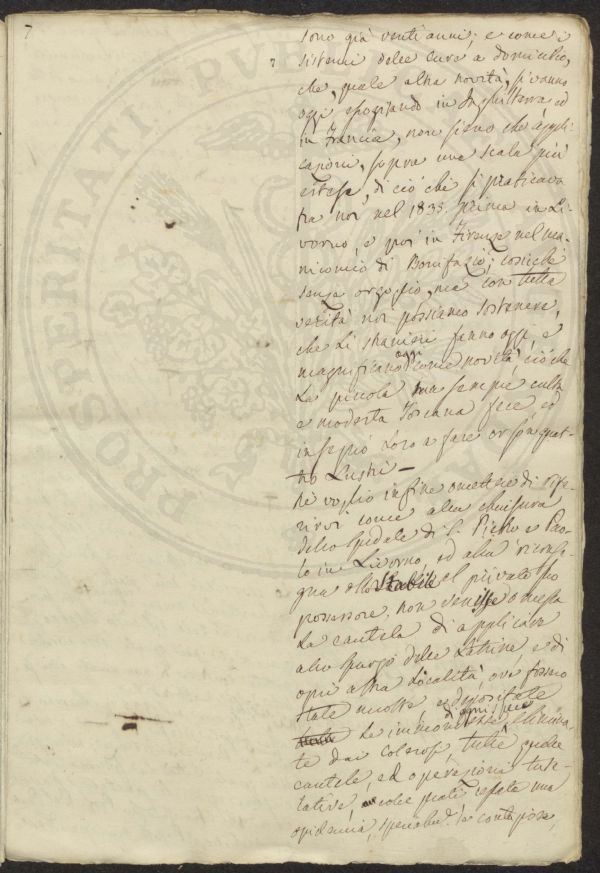 7
sono già venti anni; e come i
sistemi delle cure a domicilio,
che, quale alta novità, si vanno
oggi spacciando in Inghilterra ed
in Francia, non sieno che appli-
cazioni, sopra una scala più
estesa, di ciò che si praticava
fra noi nel 1835 prima in Li-
vorno, e poi in Firenze nel ma-
nicomio di Bonifazio; cosicchè
senza orgoglio, ma con tutta
verità noi possiamo sostenere,
che li stranieri fanno oggi, e
magnificano come novità ciò che
la piccola ma sempre culta
e modesta Toscana fece, ed
insegnò loro a fare or son quat-
tro lustri —
Nè voglio infine omettere di rife-
rirvi come alla chiusura
dello Spedale di S. Pietro e Pao-
lo in Livorno, ed alla riconse-
gna dello Stabile al privato suo
possessore, non venisse omessa
la cautela di applicare
allo spurgo delle latrine, e di
ogni altra località, ove fossero
state raccolte, e depositate
le immondezze, elimina-
te dai colerosi, tutte quelle
cautele, ed operazioni tute-
lative, colle quali
epidemia,